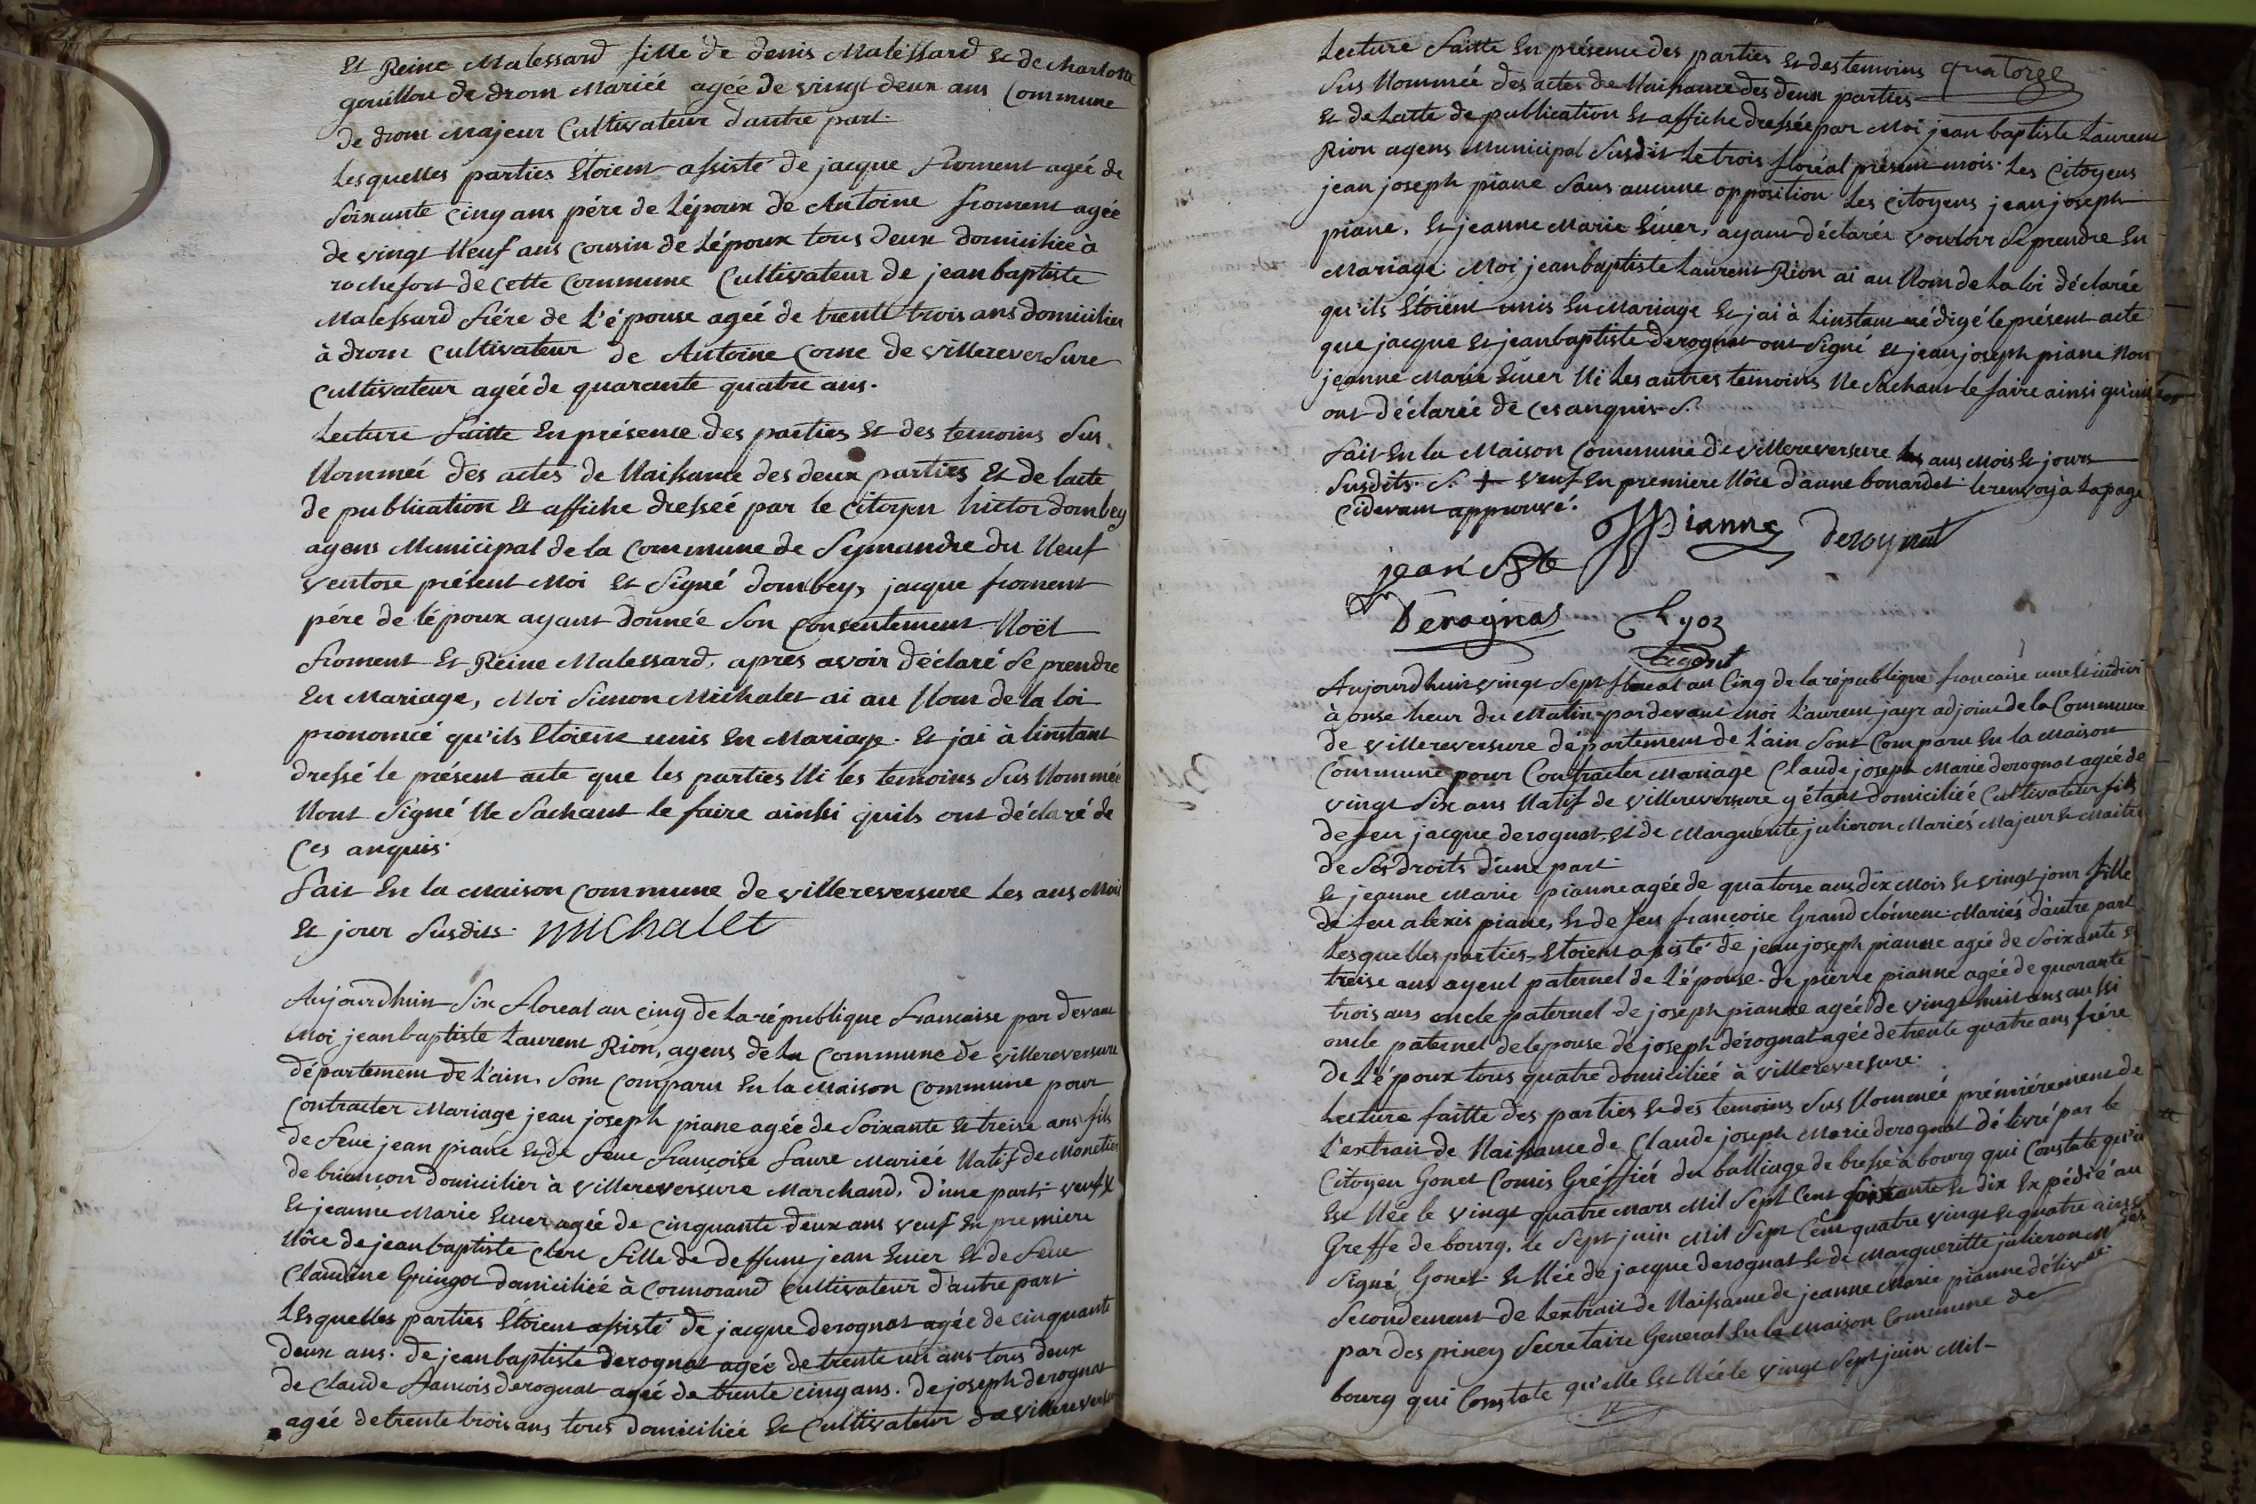 Et Reine Malessard fille de denis Malessard Et de Charlotte
gouillou de drom Mariéé agéé de vingt deux ans Commune
de drom Majeur Cultivateur d'autre part.
Lesquelles parties Etoient assisté de jacque froment agéé de
Soixante Cinq ans pére de Lépoux de Antoine froment agéé
de vingt Neuf ans Cousin de Lépoux tous deux domiciliéé à
rochefort de Cette Commune Cultivateur de jean baptiste
Malessard frére de L'épouse agéé de trente trois ans domicilier
à drom Cultivateur de Antoine Corne de villereversure
Cultivateur agéé de quarante quatre ans.
Lecture faitte En présence des parties Et des temoins Sus
Nommeé des actes de Naissance des deux parties Et de lacte
de publication Et affiche dresséé par le Citoyen hictor dombey
agens Municipal de la Commune de Symandre du Neuf
ventose présent Moi Et Signé dombey, jacque froment
pére de lépoux ayant donnéé Son Consentement Noël
froment Et Reine Malessard, apres avoir déclaré Se prendre
En Mariage, Moi Simon Michalet ai au Nom de la loi
prononcéé qu'ils Etoient unis En Mariage. Et jai à linstant
dressé le présent acte que les parties Ni les temoins Sus Nommée
Nont Signé Ne Sachant le faire ainssi quils ont déclaré de
Ces anquis.
fait En la Maison Commune de villereversure Les ans Mois
Et jour Susdits. Michallet
Aujourdhuin Six floreal an cinq de La république francaise par devant
Moi jean baptiste Laurent Rion, agens de La Commune de villereversure
département de L'ain. Sont Comparu En la Maison Commune pour
Contracter Mariage jean joseph piane agéé de Soixante Et treise ans fils
de feue jean piane Et de feue francoise faure Mariéé Natif de Monetier
de briancon domicilier à villereversure Marchand, d'une part veuf
Et jeanne Marie Euer agéé de Cinquante deux ans veuf En premiere
Nôce de jean baptiste Clere fille de deffunt jean Euer Et de feue
Claudine Gringot domiciliéé à Cormorand Cultivateur d'autre part
LEsquelles parties Etoient assisté de jacque derognat agéé de cinquante
deux ans. de jean baptiste derognat agéé de trente un ans tous deux
de Claude francois derognat agéé de trente cinq ans. de joseph derognat
agéé de trente trois ans tous domiciliéé Et Cultivateur de villereversure
quatorze
Lecture faitte En présence des parties Et des temoins
Sus Nommeé des actes de Naissance des deux parties
Et de Lacte de publication Et affiche dresséé par Moi jean baptiste Laurent
Rion agens Municipal Susdit Le trois floréal présent mois. Les Citoyens
jean joseph piane Sans aucune opposition Les Citoyens jean joseph
piane. Et jeanne Marie Euer, ayant déclaréé vouloir Se prendre En
Mariage Moi jean baptiste Laurent Rion ai au Nom de La loi déclaréé
qu'ils Etoient unis En Mariage Et jai à Linstant rédigé le présent acte
que jacque Et jean baptiste derognat ont Signé et jean joseph piane Non
jeanne Marie Euer Ni Les autres temoins Ne Sachant le faire ainsi qu'un
ont déclaréé de Ces anquis. S.
fait En la Maison Commune de villereversure Les ans Mois Et jours
Susdits. S. + veuf En premiere Nôce danne bonardet. le renvoy à La page
Cidevant approuvé.
JJPianne derognat
jean Bte
Derognat Ryoz
agent
Aujourdhuin vingt Sept floreal an Cinq de la république francaise une Et indivi
à onse heur du Matin pardevant Moi Laurent jayr adjoint de la Commune
de villereversure département de L'ain Sont Comparu En la Maison
Commune pour Contracter Mariage Claude joseph Marie derognat agéé de
vingt Six ans Natif de villereversure y étant domiciliéé Cultivateur fils
de feu jacque derognat Et de Marguerite julieron Mariés Majeur Et Maitre
de Ses droits d'une part.
Et jeanne Marie pianne agéé de quatorse ans dix Mois Et vingt jour fille
de feu alexis piane, Et de feu francoise Grand Clément Mariés d'autre part
Lesquelles parties Etoient assisté de jean joseph pianne agéé de Soixante Et
treise ans ayeul paternel de L'épouse. de pierre pianne agéé de quarante
trois ans oncle paternel de joseph pianne agéé de vingt huit ans aussi
oncle paternel de lepouse de joseph dérognat agéé de trente quatre ans frére
de L'époux tous quatre domiciliéé à villereversure.
Lecture faitte des parties Et des temoins Sus Nommeé prémiérement de
L'extrait de Naissance de Claude joseph Marie derognat délivré par le
Citoyen Gonet Comis Gréffiér du balliage de bresse à bourg qui Constate qu'il
Est Néé le vingt quatre Mars Mil Sept Cent Soixante Et dix Expédiéé au
Greffe de bourg, le Sept juin Mil Sept Cent quatre vingt Et quatre ainssi
Signé Gonet. Et Néé de jacque derognat Et de Margueritte julieron Mariés
Secondement de Lextrait de Naissance de jeanne Marie pianne délivré
par des priney Secretaire General En la Maison Commune de
bourg qui Constate qu'elle Est Néé le vingt Sept juin Mil